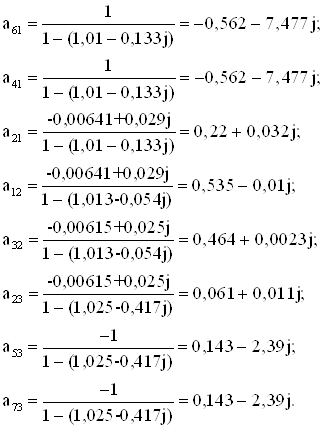 a₆₁ = 1 / (1 – (1,01 – 0,133j)) = –0,562 – 7,477j;
a₄₁ = 1 / (1 – (1,01 – 0,133j)) = –0,562 – 7,477j;
a₂₁ = (-0,00641+0,029j) / (1 – (1,01 – 0,133j)) = 0,22 + 0,032j;
a₁₂ = (-0,00641+0,029j) / (1 – (1,013-0,054j)) = 0,535 – 0,01j;
a₃₂ = (-0,00615+0,025j) / (1 – (1,013-0,054j)) = 0,464 + 0,0023j;
a₂₃ = (-0,00615+0,025j) / (1 – (1,025-0,417j)) = 0,061 + 0,011j;
a₅₃ = –1 / (1 – (1,025-0,417j)) = 0,143 – 2,39j;
a₇₃ = –1 / (1 – (1,025-0,417j)) = 0,143 – 2,39j.